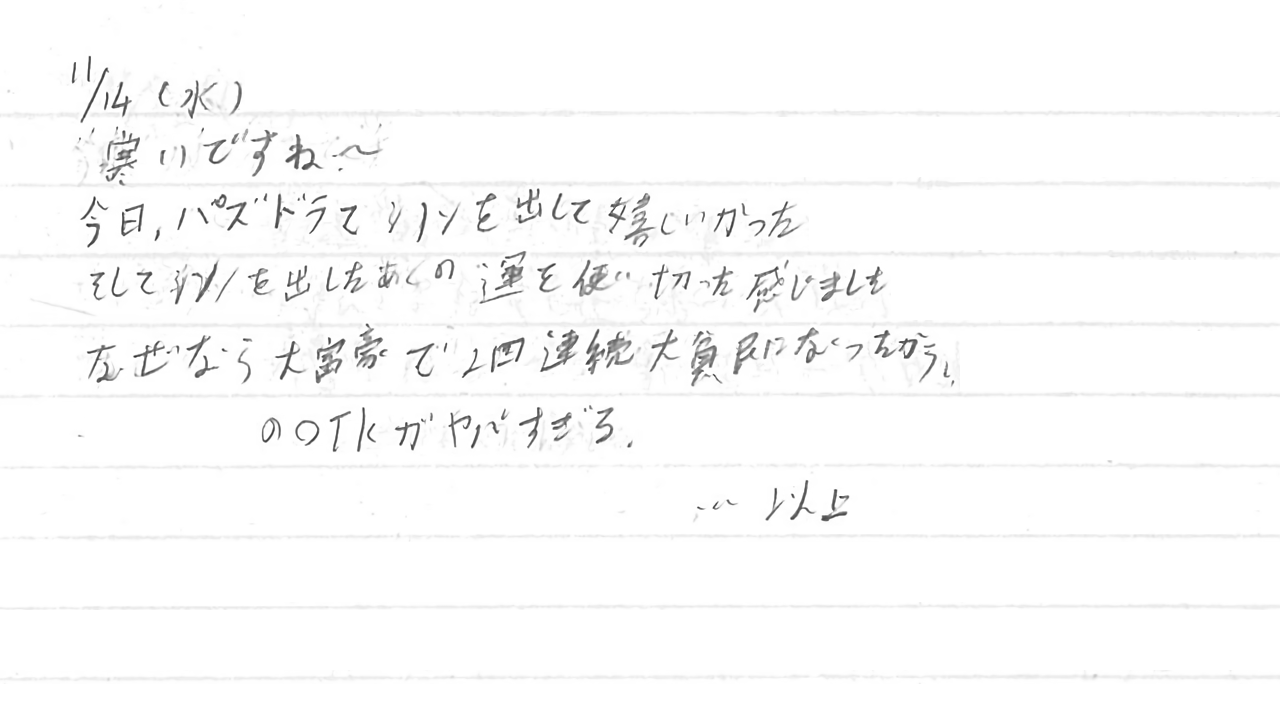 11/14 (水)
寒いですね〜
今日, パズドラでシノンを出して嬉しいかった
そしてシノンを出したあとの運を使い切った感じました
なぜなら大富豪で2回連続大貧民になったから。
のOTKがヤバすぎる.
… 以上